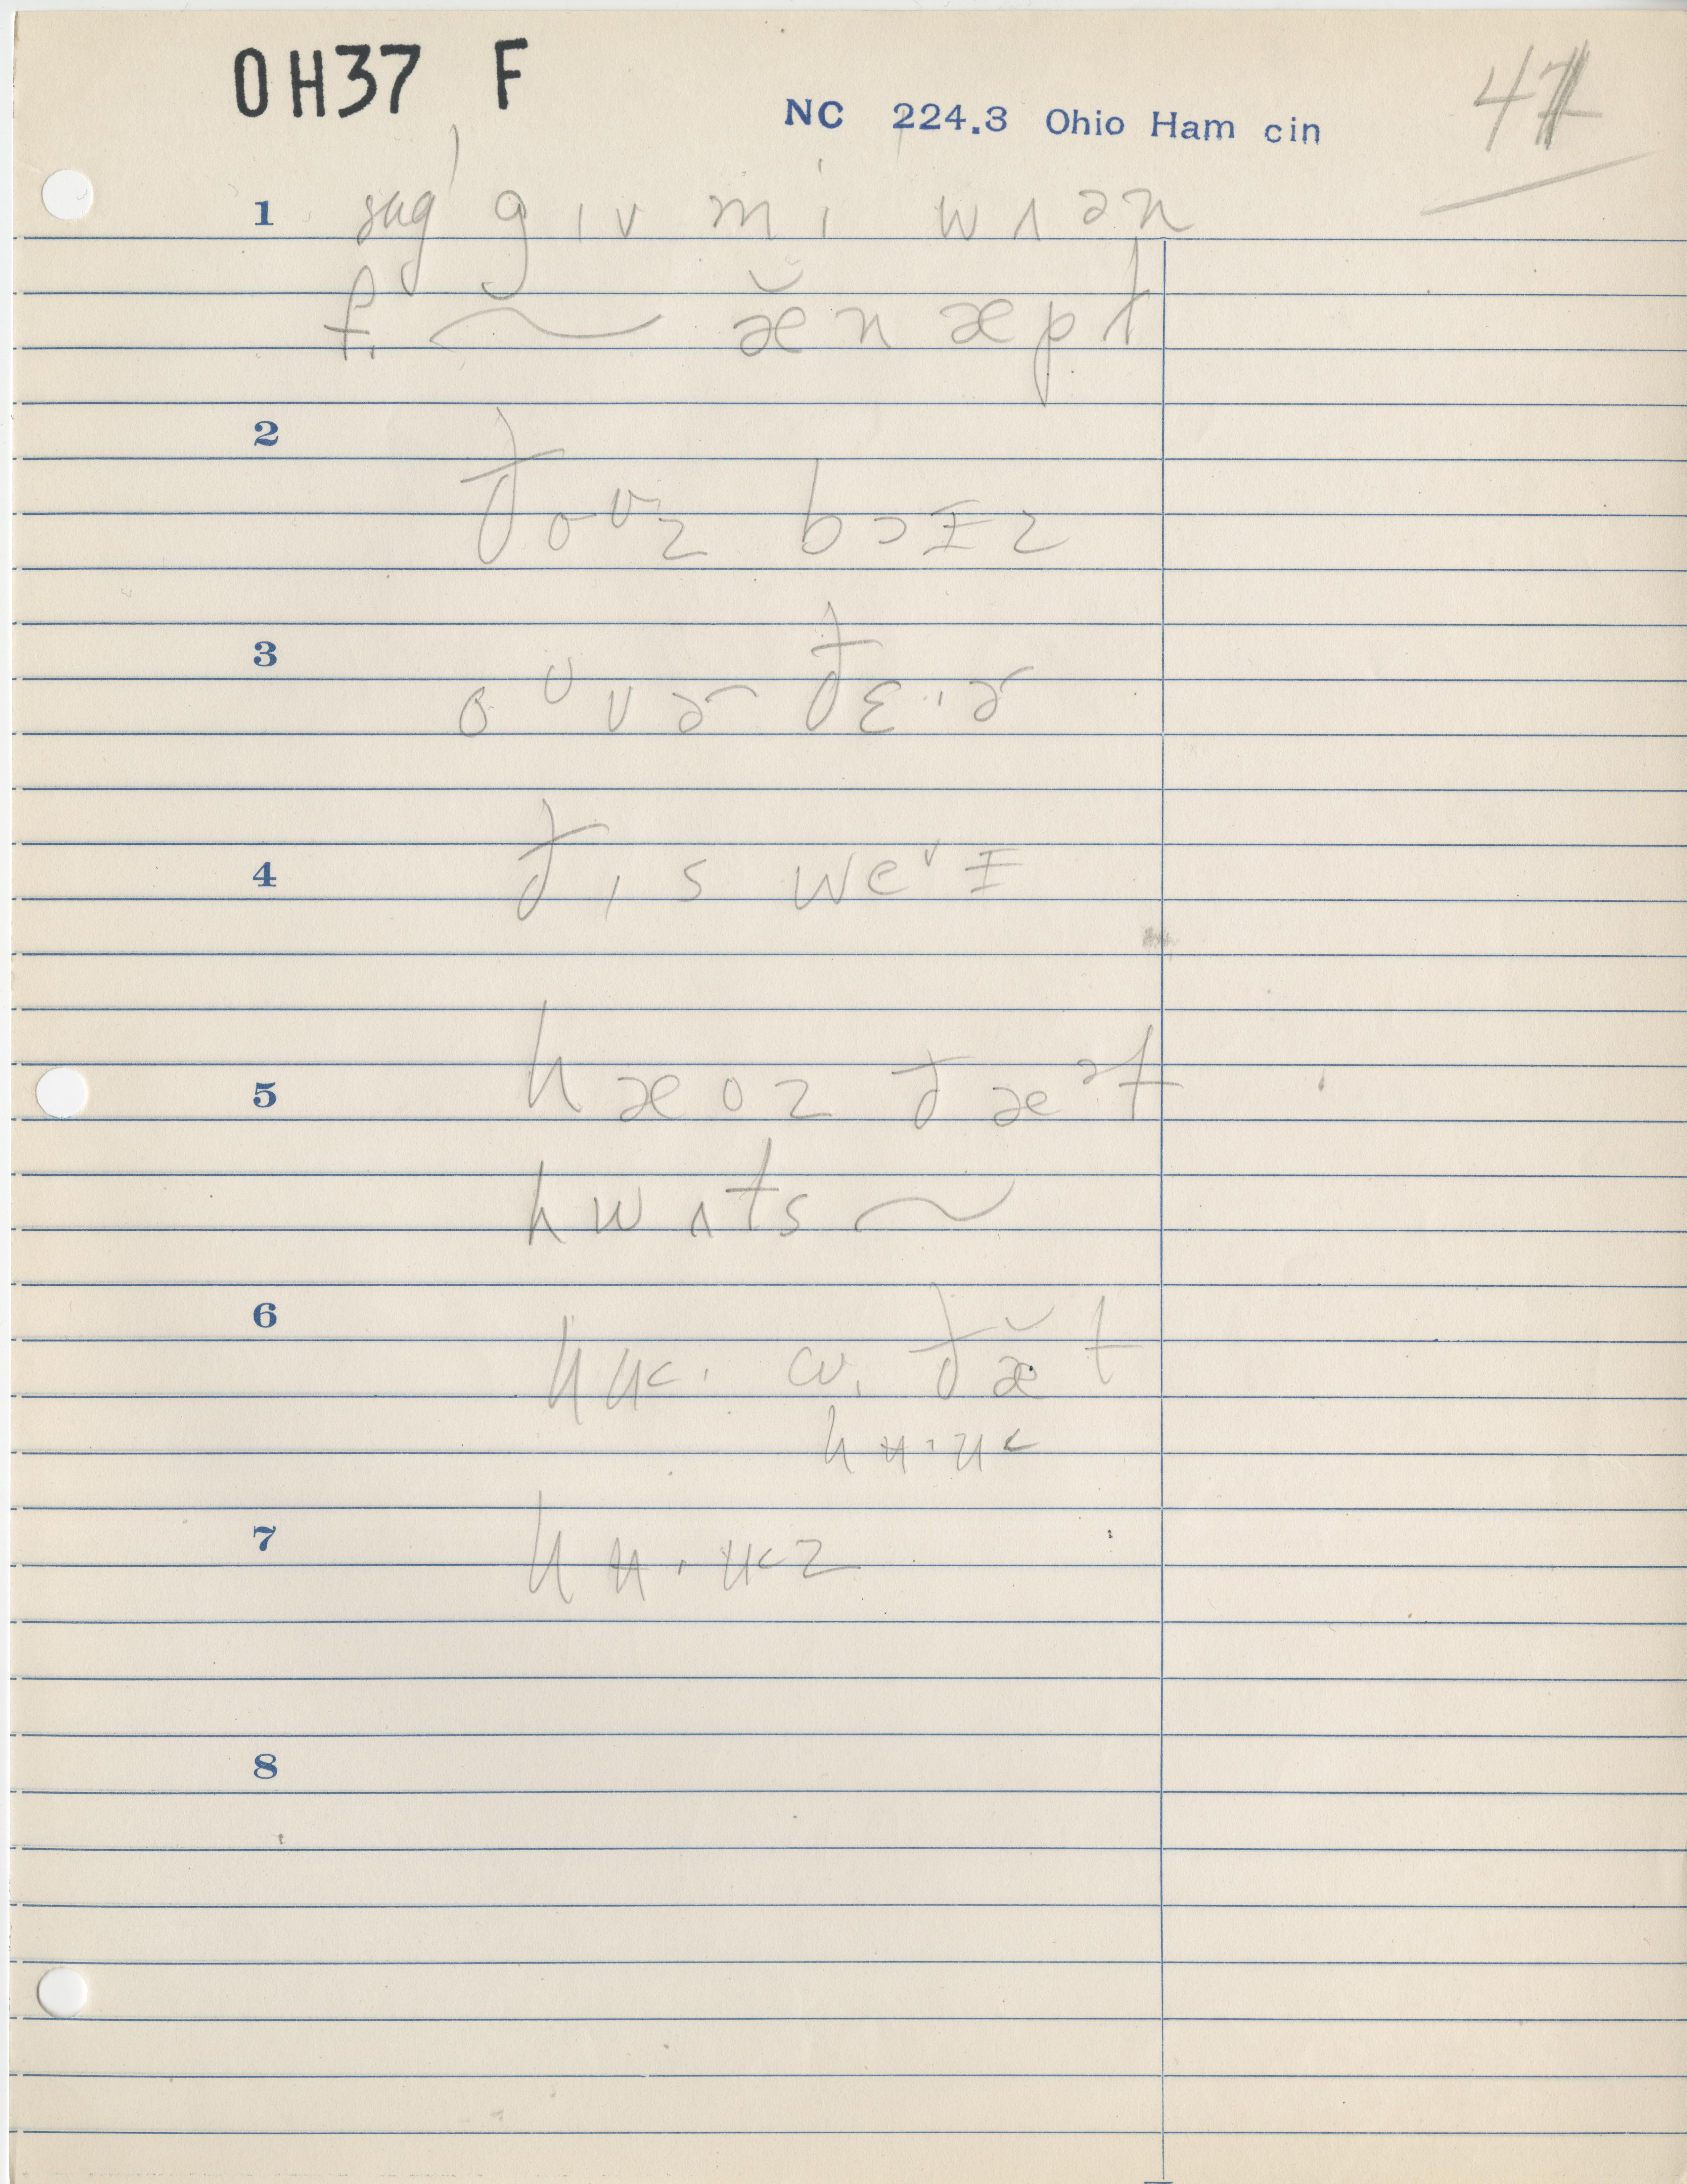 OH37 F
NC 224.3 Ohio Ham cin
47
1 sug gɪv mi wʌən
f. ~ æ̆n æpt
2 ðoᶷz bɔɪz
3 oᶷvɚ ðɛ·ɚ
4 ðɪs weᵛɪ
5 hæoz ðæᵊt
hwʌts ~
6 ðæ̆t
hʉ·u<
7 hʉ·ʉ<z
8